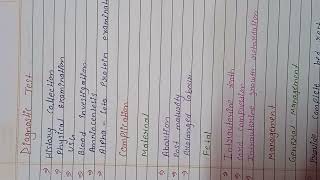 Diagnostic Test
→ History Collection
→ Physical Examination
→ USG
→ Blood Investigation
→ Amniocentesis
→ Alpha - Feto Protein examinat
Complication
Maternal
→ Abortion
→ Post maturity
→ Prolonged labour
Fetal
→ Intrauterine death
→ Cord compression
→ Intrauterine growth
Management
General Management
→ Provide complete bed rest